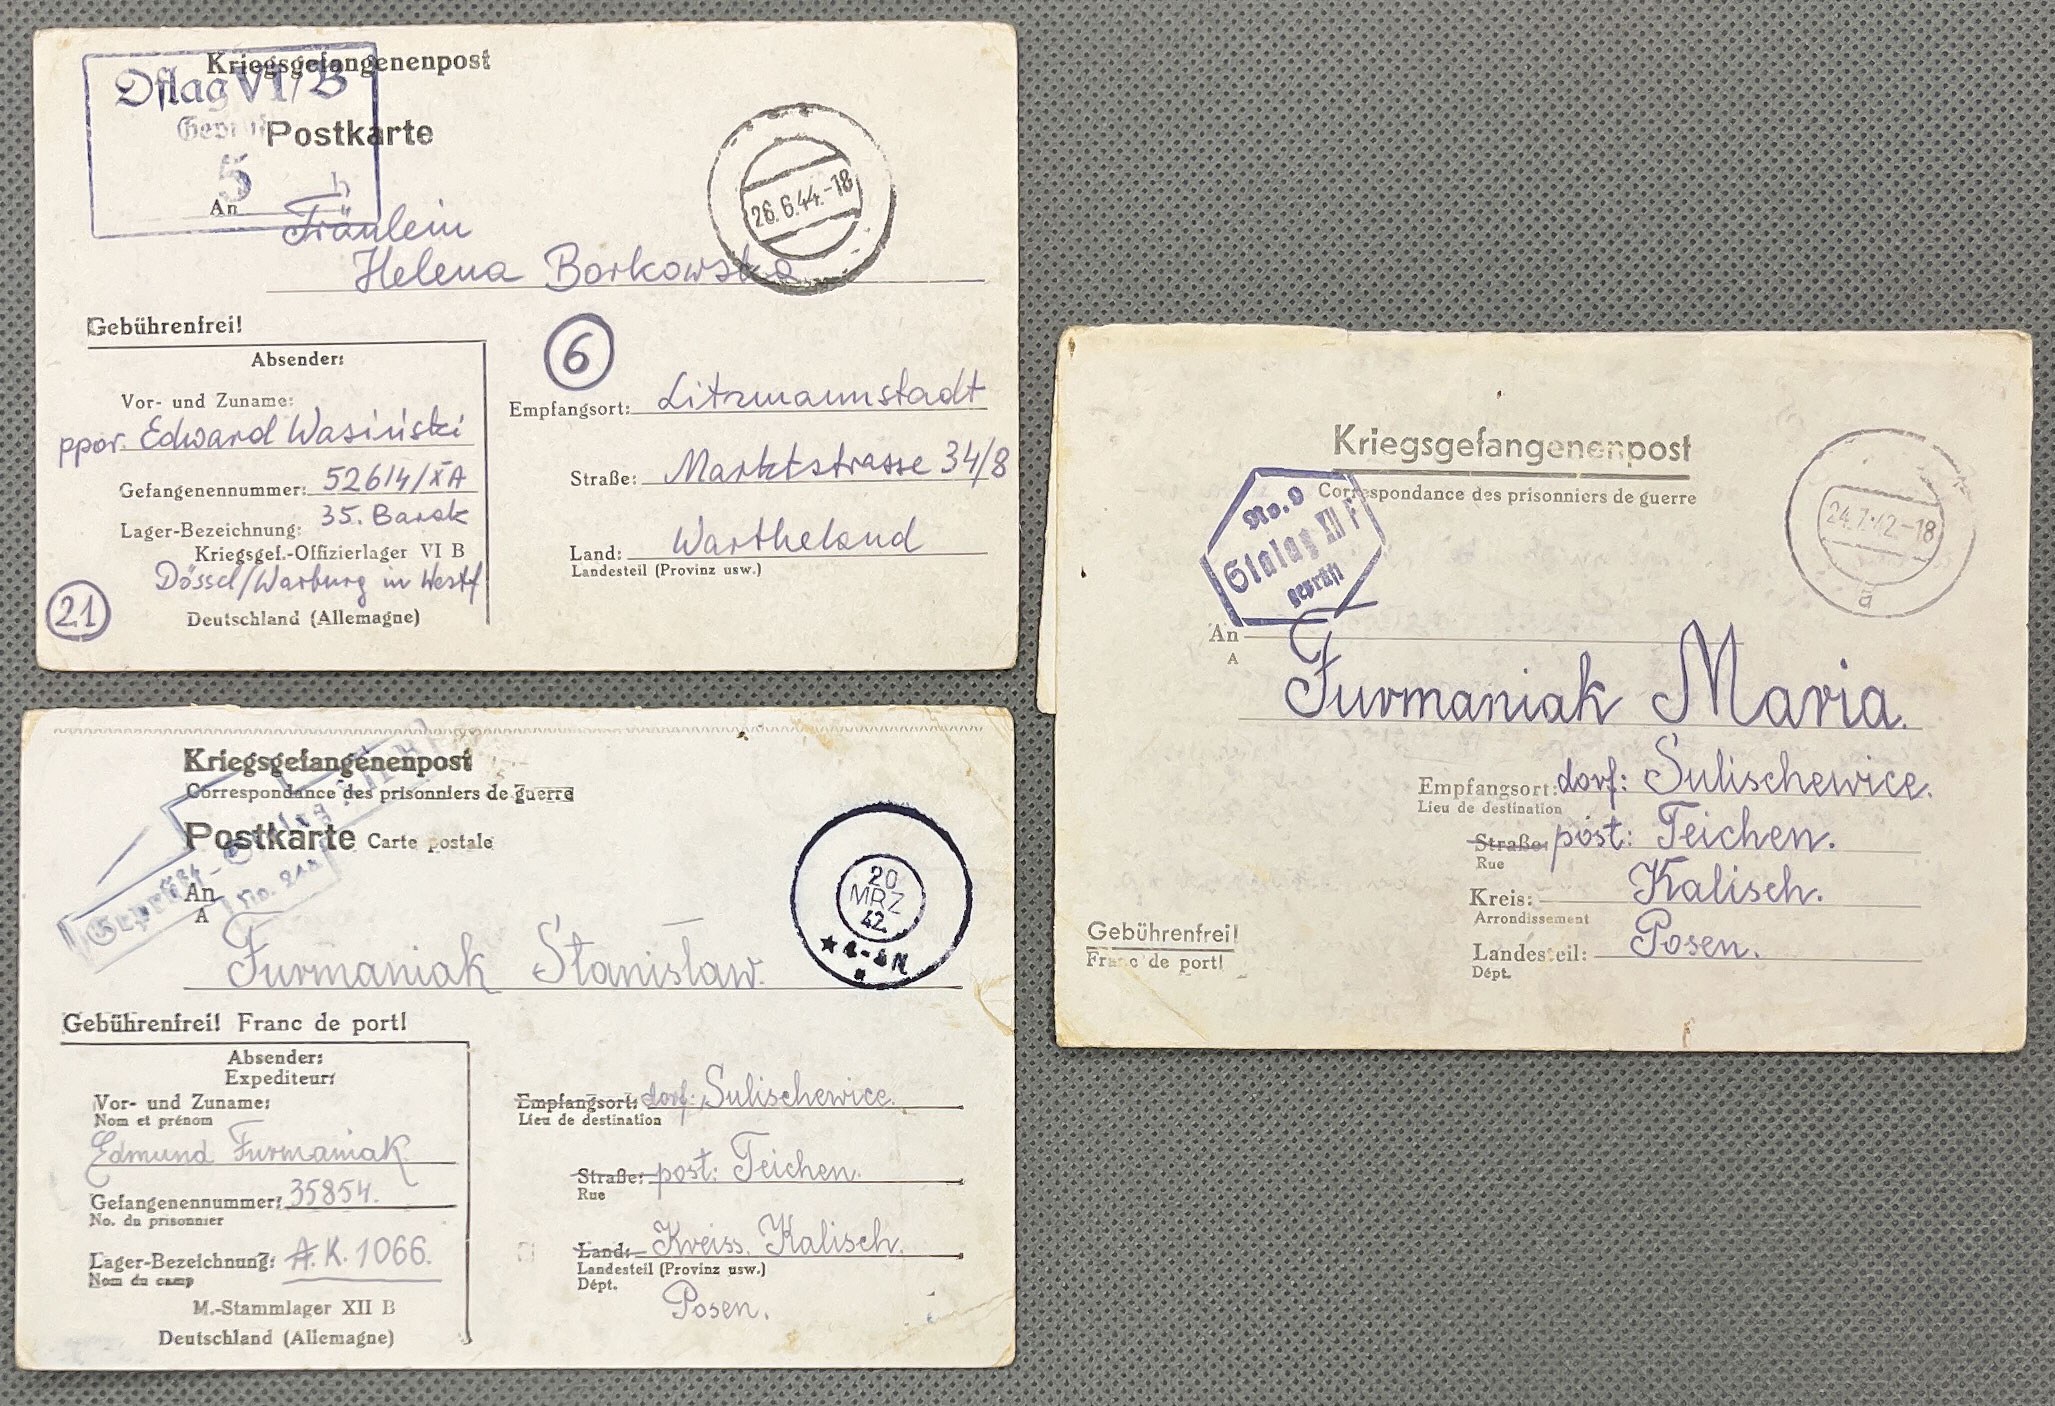 Kriegsgefangenenpost
Oflag VI/B
Geprüft
Postkarte
5
An
Fräulein
Helena Borkowska
26.6.44.-18
Gebührenfrei!
Absender:
Vor- und Zuname:
ppor. Edward Wasiński
Gefangenennummer: 52614/XA
35. Barak
Lager-Bezeichnung:
Kriegsgef.-Offizierlager VI B
Dössel/Warburg in Westf
Deutschland (Allemagne)
21
6
Empfangsort: Litzmannstadt
Straße: Marktstrasse 34/8
Land: Wartheland
Landesteil (Provinz usw.)
Kriegsgefangenenpost
Correspondance des prisonniers de guerre
Postkarte Carte postale
Geprüft-Stalag
No.
An
A
Furmaniak Stanisław.
20
MRZ
42
Gebührenfrei! Franc de port!
Absender:
Expediteur:
Vor- und Zuname:
Nom et prénom
Edmund Furmaniak
Gefangenennummer: 35854.
No. du prisonnier
Lager-Bezeichnung: A.K. 1066.
Nom du camp
M.-Stammlager XII B
Deutschland (Allemagne)
Empfangsort: dorf: Sulischewice.
Lieu de destination
Straße: post: Teichen.
Rue
Land: Kreiss. Kalisch.
Landesteil (Provinz usw.)
Dépt.
Posen.
Kriegsgefangenenpost
Correspondance des prisonniers de guerre
No. 9
Stalag XII F
geprüft
24.7.42.-18
a
An
A
Furmaniak Maria.
Empfangsort: dorf: Sulischewice.
Lieu de destination
Straße: post: Teichen.
Rue
Kreis: Kalisch.
Arrondissement
Landesteil: Posen.
Dépt.
Gebührenfrei!
Franc de port!